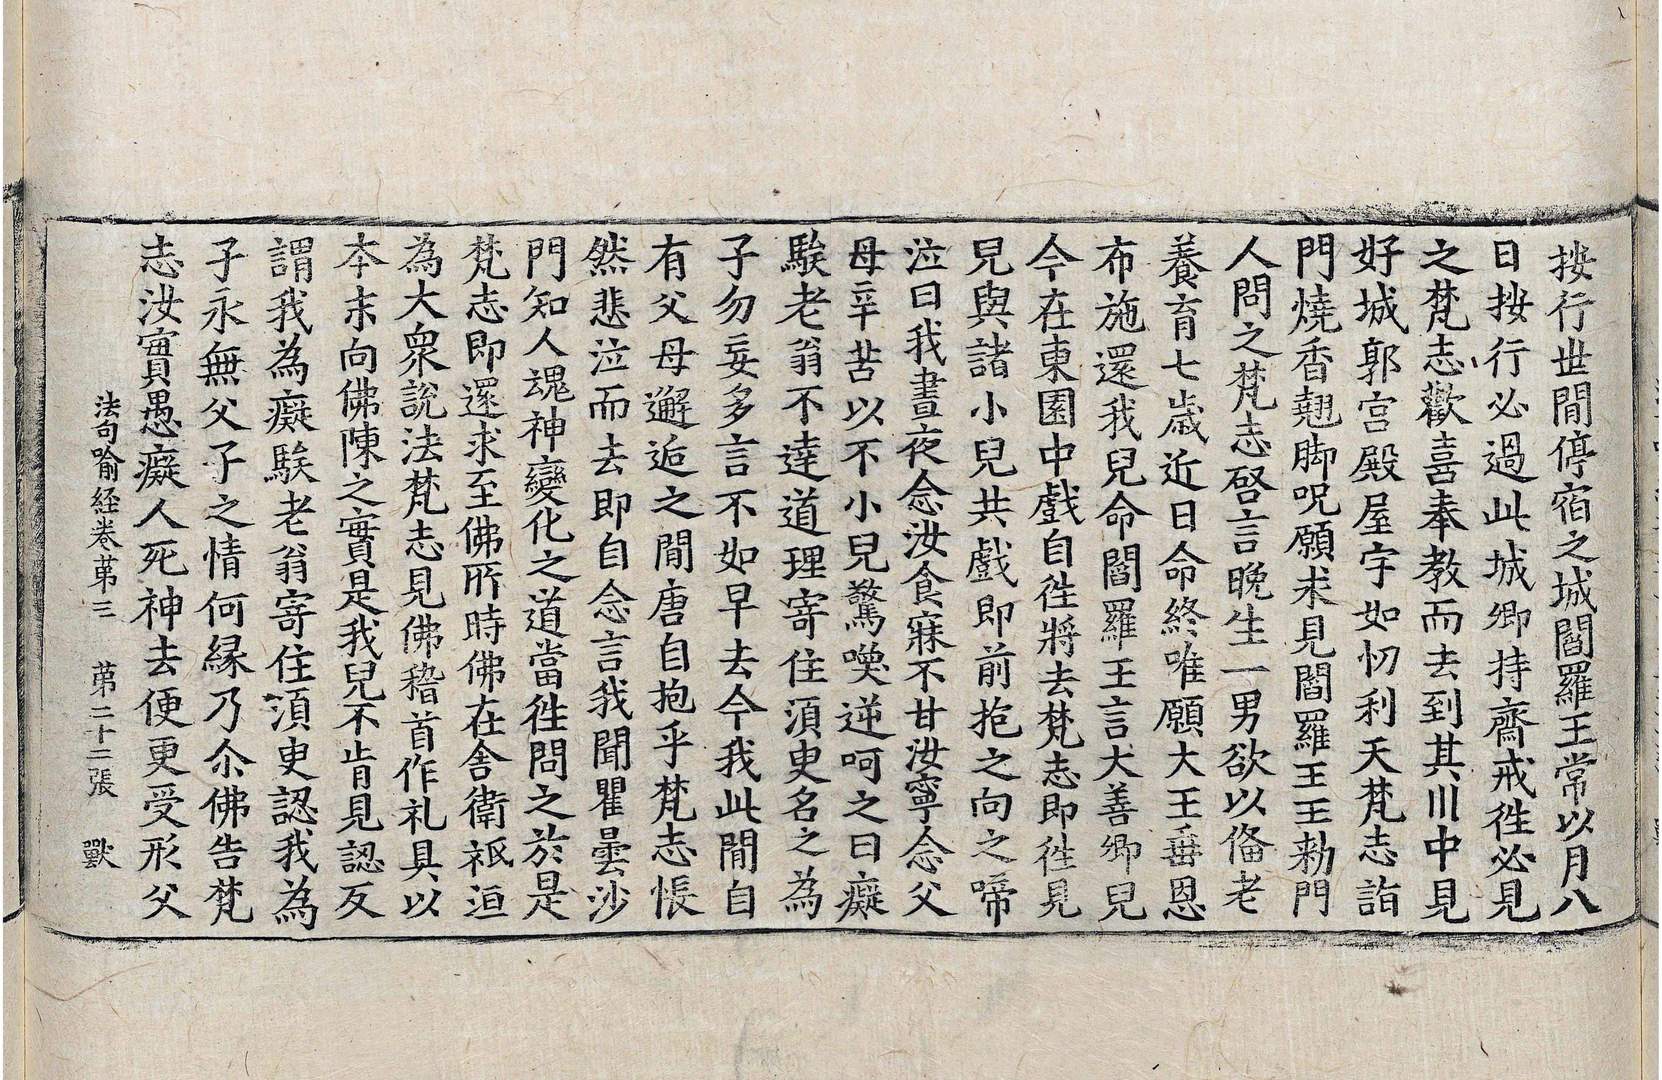 按行世間停宿之城閻羅王常以月八
日按行必過此城卿持齋戒徃必見
之梵志歡喜奉教而去到其川中見
好城郭宮殿屋宇如忉利天梵志詣
門燒香翹脚呪願求見閻羅王王勑門
人問之梵志啓言晚生一男欲以俻老
養育七歳近日命終唯願大王垂恩
布施還我兒命閻羅王言大善卿兒
今在東園中戲自徃將去梵志即徃見
兒與諸小兒共戲即前抱之向之啼
泣曰我晝夜念汝食寐不甘汝寧念父
母辛苦以不小兒驚喚逆呵之曰癡
騃老翁不達道理寄住湏臾名之為
子勿妄多言不如早去今我此閒自
有父母邂逅之閒唐自抱乎梵志悵
然悲泣而去即自念言我聞瞿曇沙
門知人魂神變化之道當徃問之於是
梵志即還求至佛所時佛在舍衛祇洹
為大衆說法梵志見佛稽首作礼具以
本末向佛陳之實是我兒不肯見認反
謂我為癡騃老翁寄住湏臾認我為
子永無父子之情何縁乃尒佛告梵
志汝實愚癡人死神去便更受形父
法句喻經卷苐三 苐二十二張 獸